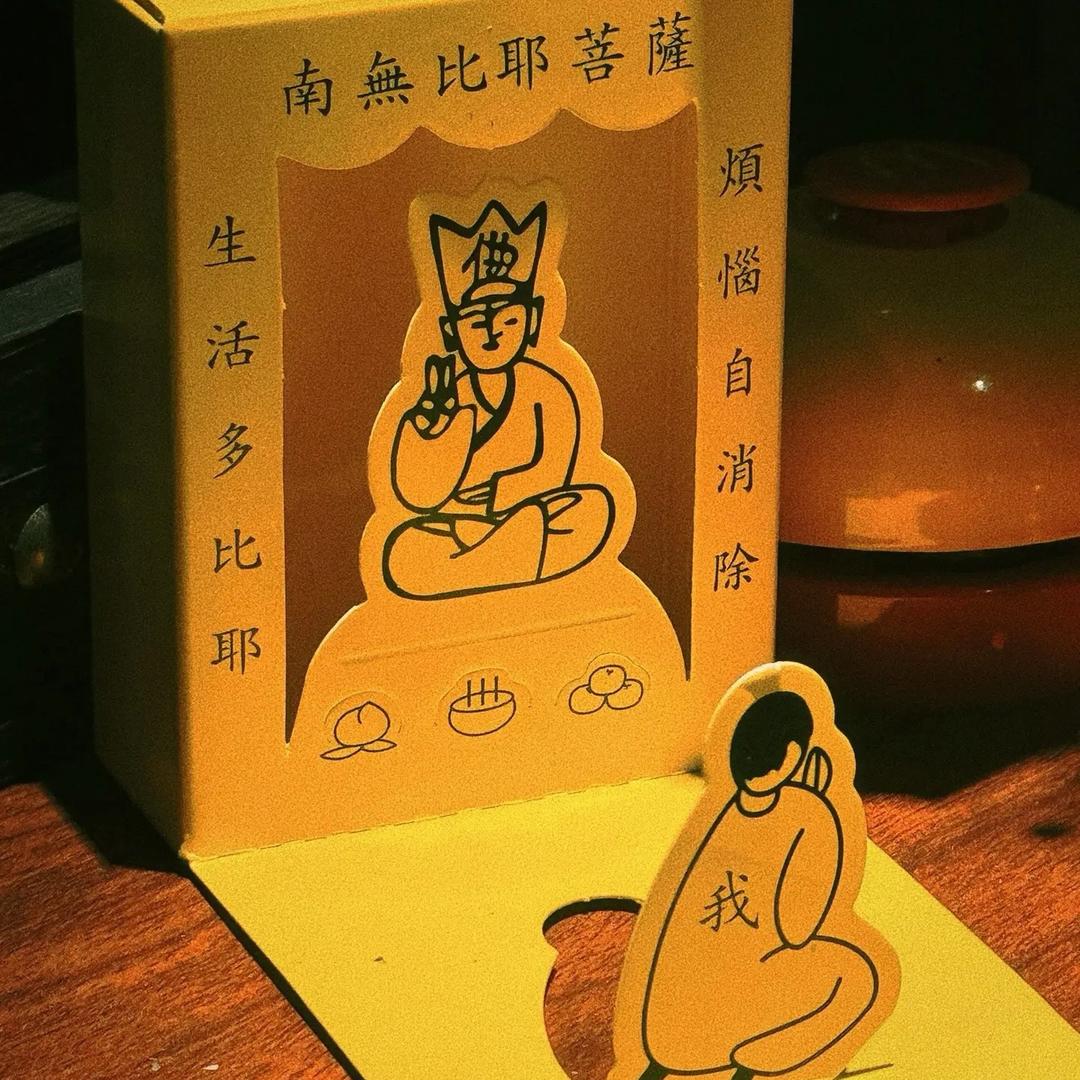 南無比耶菩薩
煩惱自消除
生活多比耶
佛
我